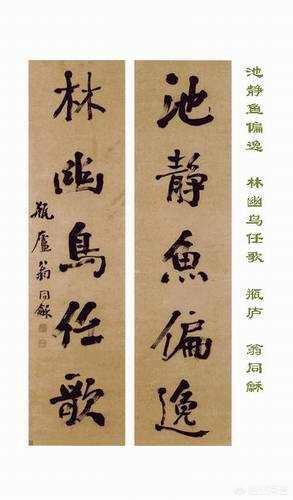 池静鱼偏逸　林幽鸟任歌　瓶庐　翁同龢
池静魚偏逸
林幽鳥任歌
瓶廬翁同龢